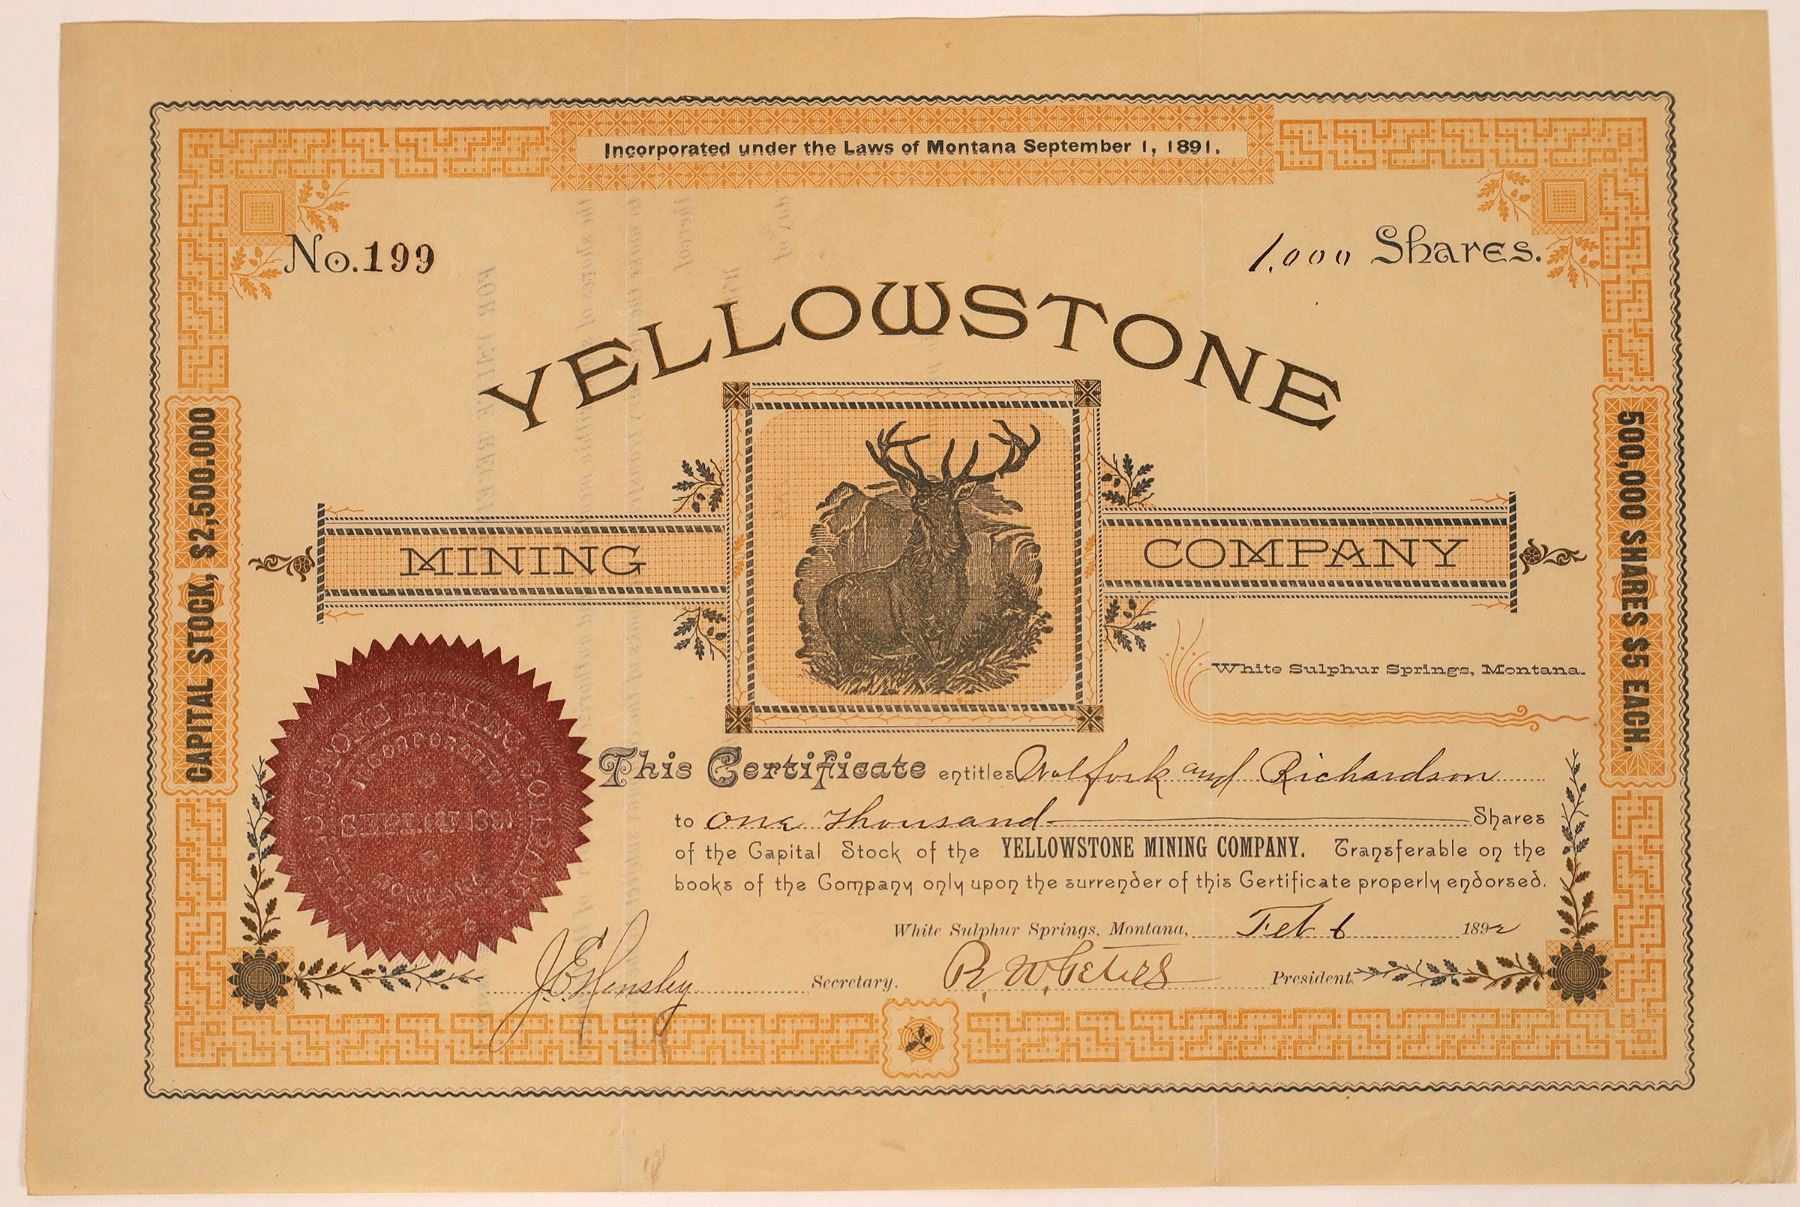 Incorporated under the Laws of Montana September 1, 1891.
No. 199
1,000 Shares.
YELLOWSTONE
MINING COMPANY
CAPITAL STOCK, $2,500.000
500,000 SHARES $5 EACH.
White Sulphur Springs, Montana.
This Certificate entitles Wolfork and Richardson
to one thousand Shares
of the Capital Stock of the YELLOWSTONE MINING COMPANY. Transferable on the
books of the Company only upon the surrender of this Certificate properly endorsed.
White Sulphur Springs, Montana, Feb 6 1892
J. E. Hensley Secretary. R. W. Peters President
YELLOWSTONE MINING COMPANY
INCORPORATED
SEPT. 1ST 1891
MONTANA